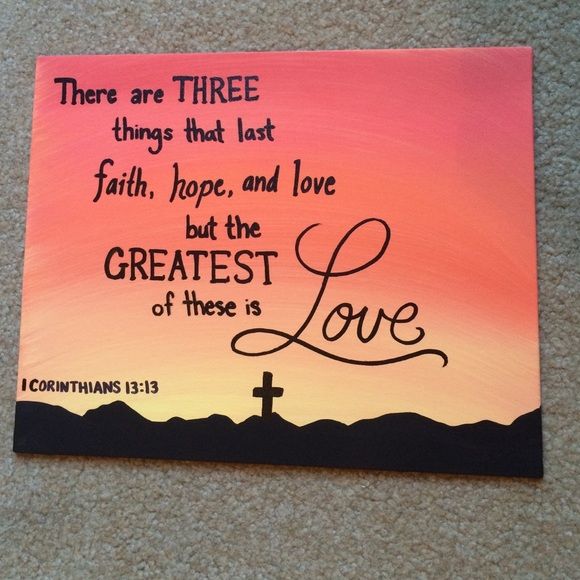 There are THREE
things that last
faith, hope, and love
but the
GREATEST
of these is
Love
1 CORINTHIANS 13:13